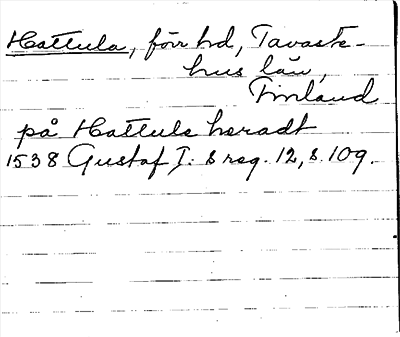 Hattula, förr hd, Tavaste-
hus län,
Finland
på Hattula haradt
1538 Gustaf I:s reg. 12, s. 109.